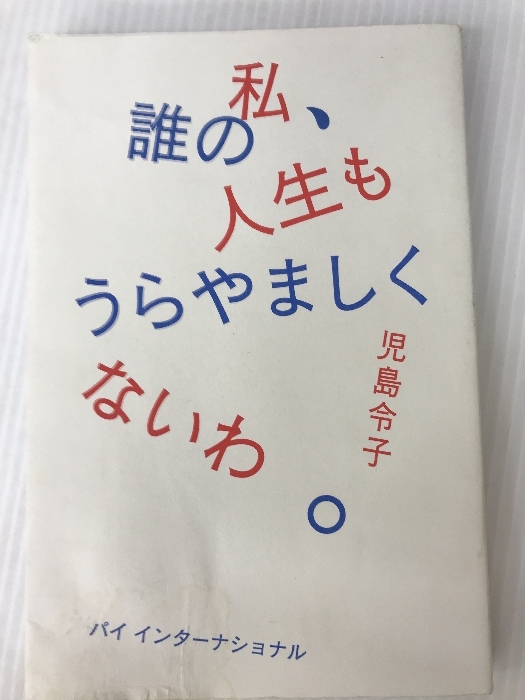 私、
誰の
人生も
うらやましく
ないわ
。
児島令子
パイ インターナショナル